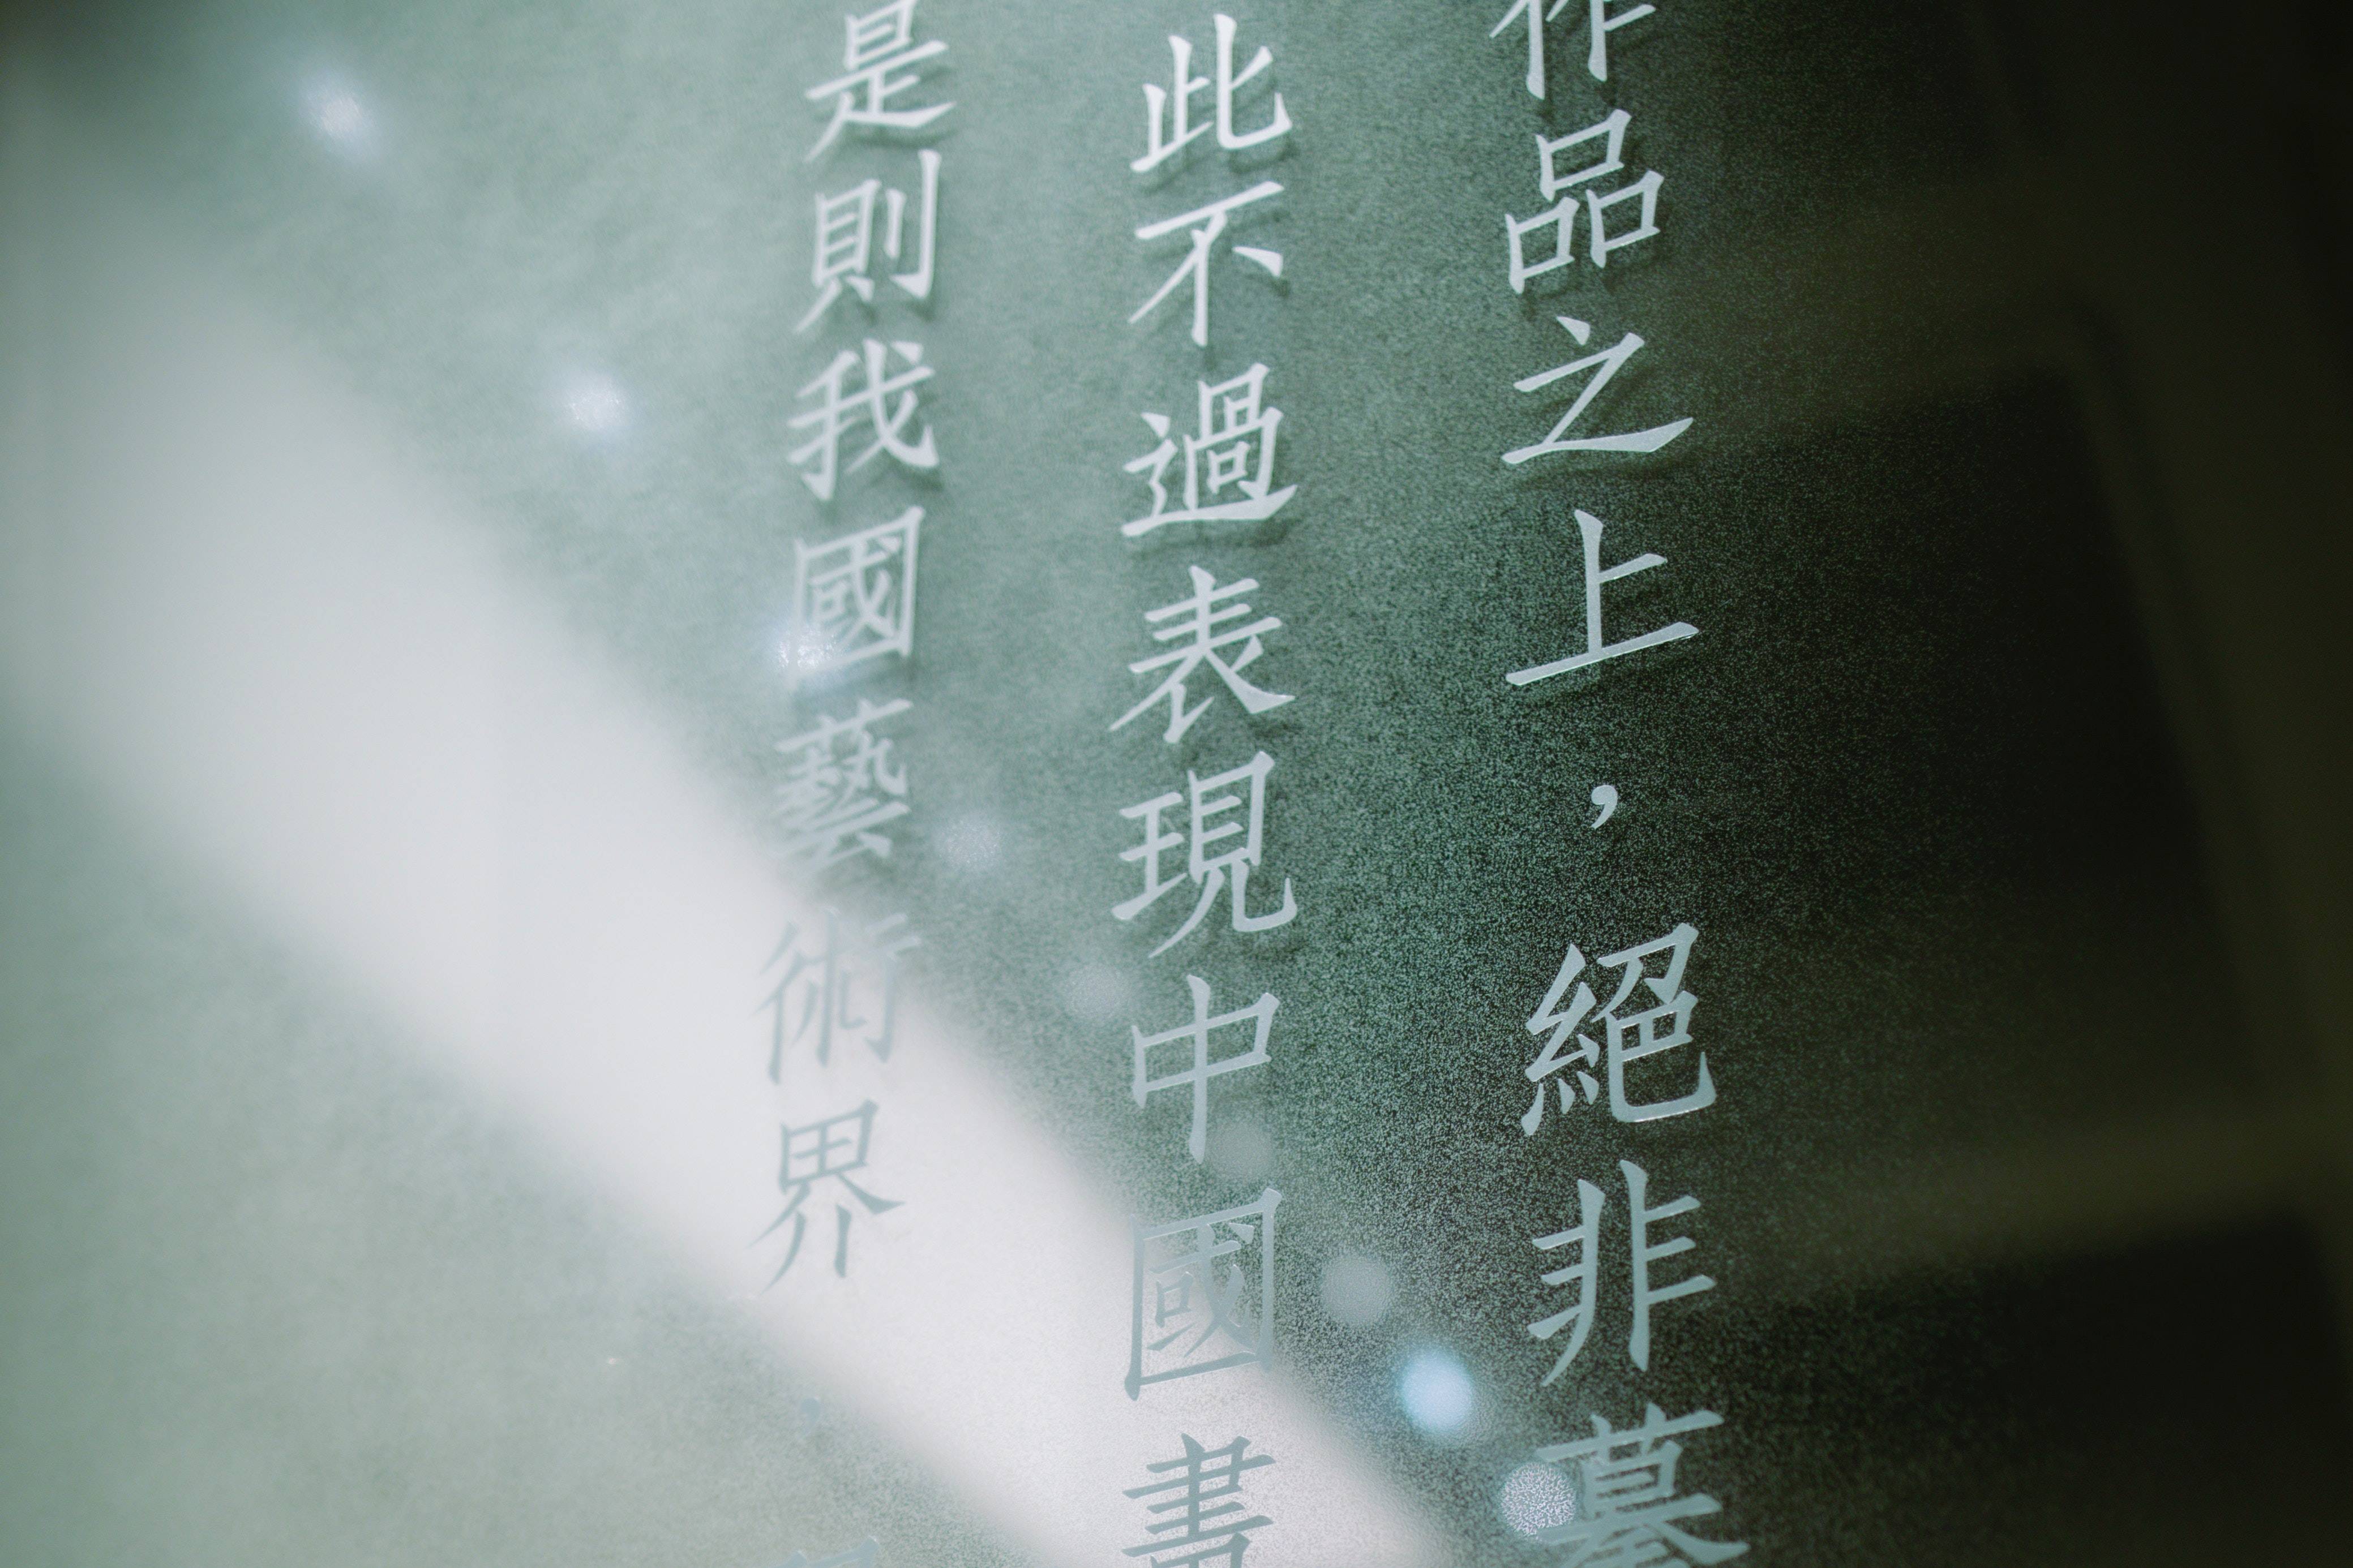 作品之上，絕非摹
此不過表現中國畫
是則我國藝術界，